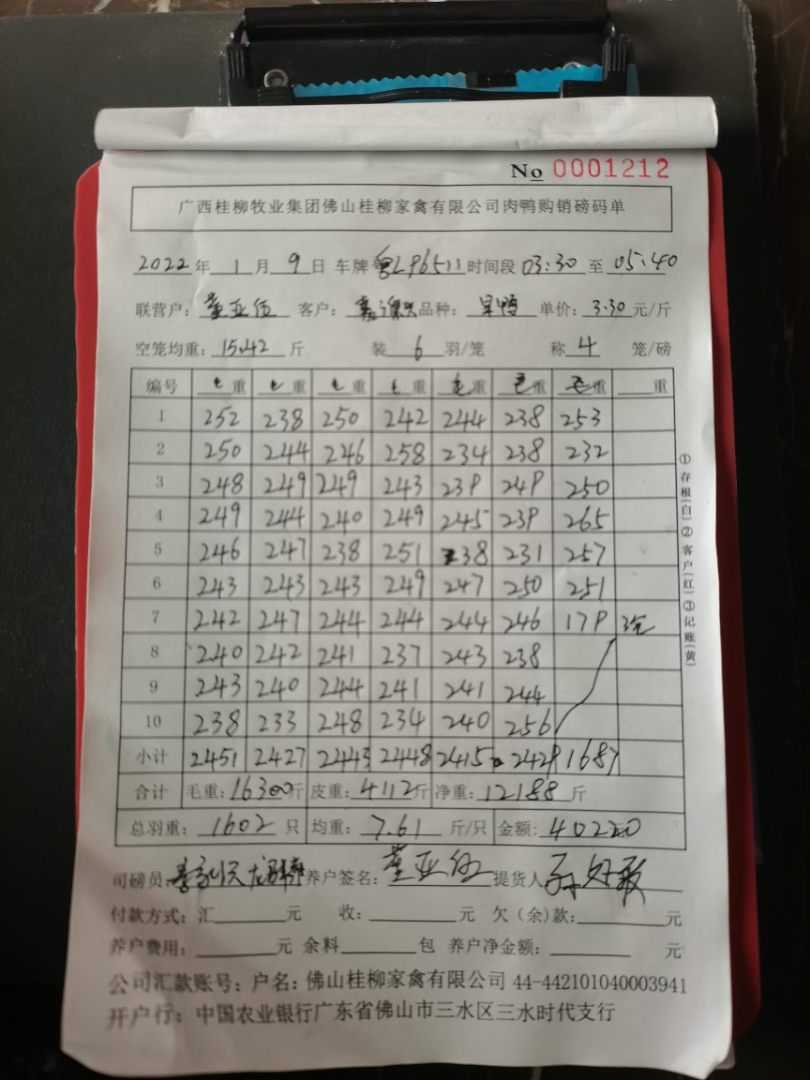 No 0001212
广西桂柳牧业集团佛山桂柳家禽有限公司肉鸭购销磅码单
2022年 1 月 9 日 车牌 粤L96511 时间段 03:30 至 05:40
联营户: 董亚伍 客户: 品种: 旱鸭 单价: 3.30 元/斤
空笼均重: 15.42 斤 装 6 羽/笼 称 4 笼/磅
编号 毛重 毛重 毛重 毛重 毛重 毛重 毛重 重
1 252 238 250 242 244 238 253
2 250 244 246 258 234 238 232
3 248 249 249 243 239 249 250
4 249 244 240 249 245 239 265
5 246 247 238 251 238 231 257
6 243 243 243 249 247 250 251
7 242 247 244 244 244 246 179
8 240 242 241 237 243 238
9 243 240 244 241 241 244
10 238 233 248 234 240 256
小计 2451 2427 2443 2448 2415 2429 1687
合计 毛重: 16300斤 皮重: 4112斤 净重: 12188 斤
总羽重: 1602 只 均重: 7.61 斤/只 金额: 40220
司磅员: 养户签名: 董亚伍 提货人
付款方式: 汇 元 收: 元 欠(余)款: 元
养户费用: 元 余料 包 养户净金额: 元
公司汇款账号: 户名: 佛山桂柳家禽有限公司 44-442101040003941
开户行: 中国农业银行广东省佛山市三水区三水时代支行
①存根(白)②客户(红)③记账(黄)